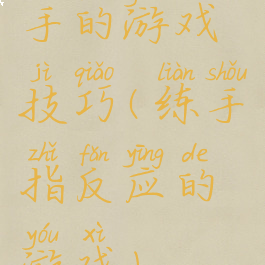 手的游戏
jì qiǎo liàn shǒu
技巧(练手
zhǐ fǎn yīng de
指反应的
yóu xì
游戏)